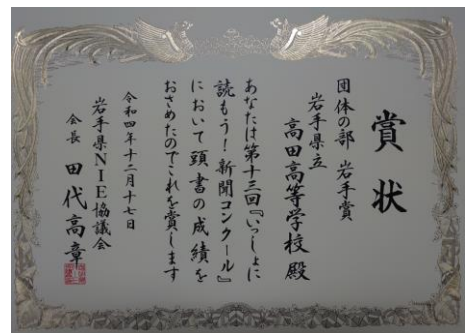 賞状
団体の部 岩手賞
岩手県立
高田高等学校殿
あなたは第十三回『いっしょに
読もう!新聞コンクール』
において頭書の成績を
おさめたのでこれを賞します
令和四年十二月十七日
岩手県NIE協議会
会長 田代高章